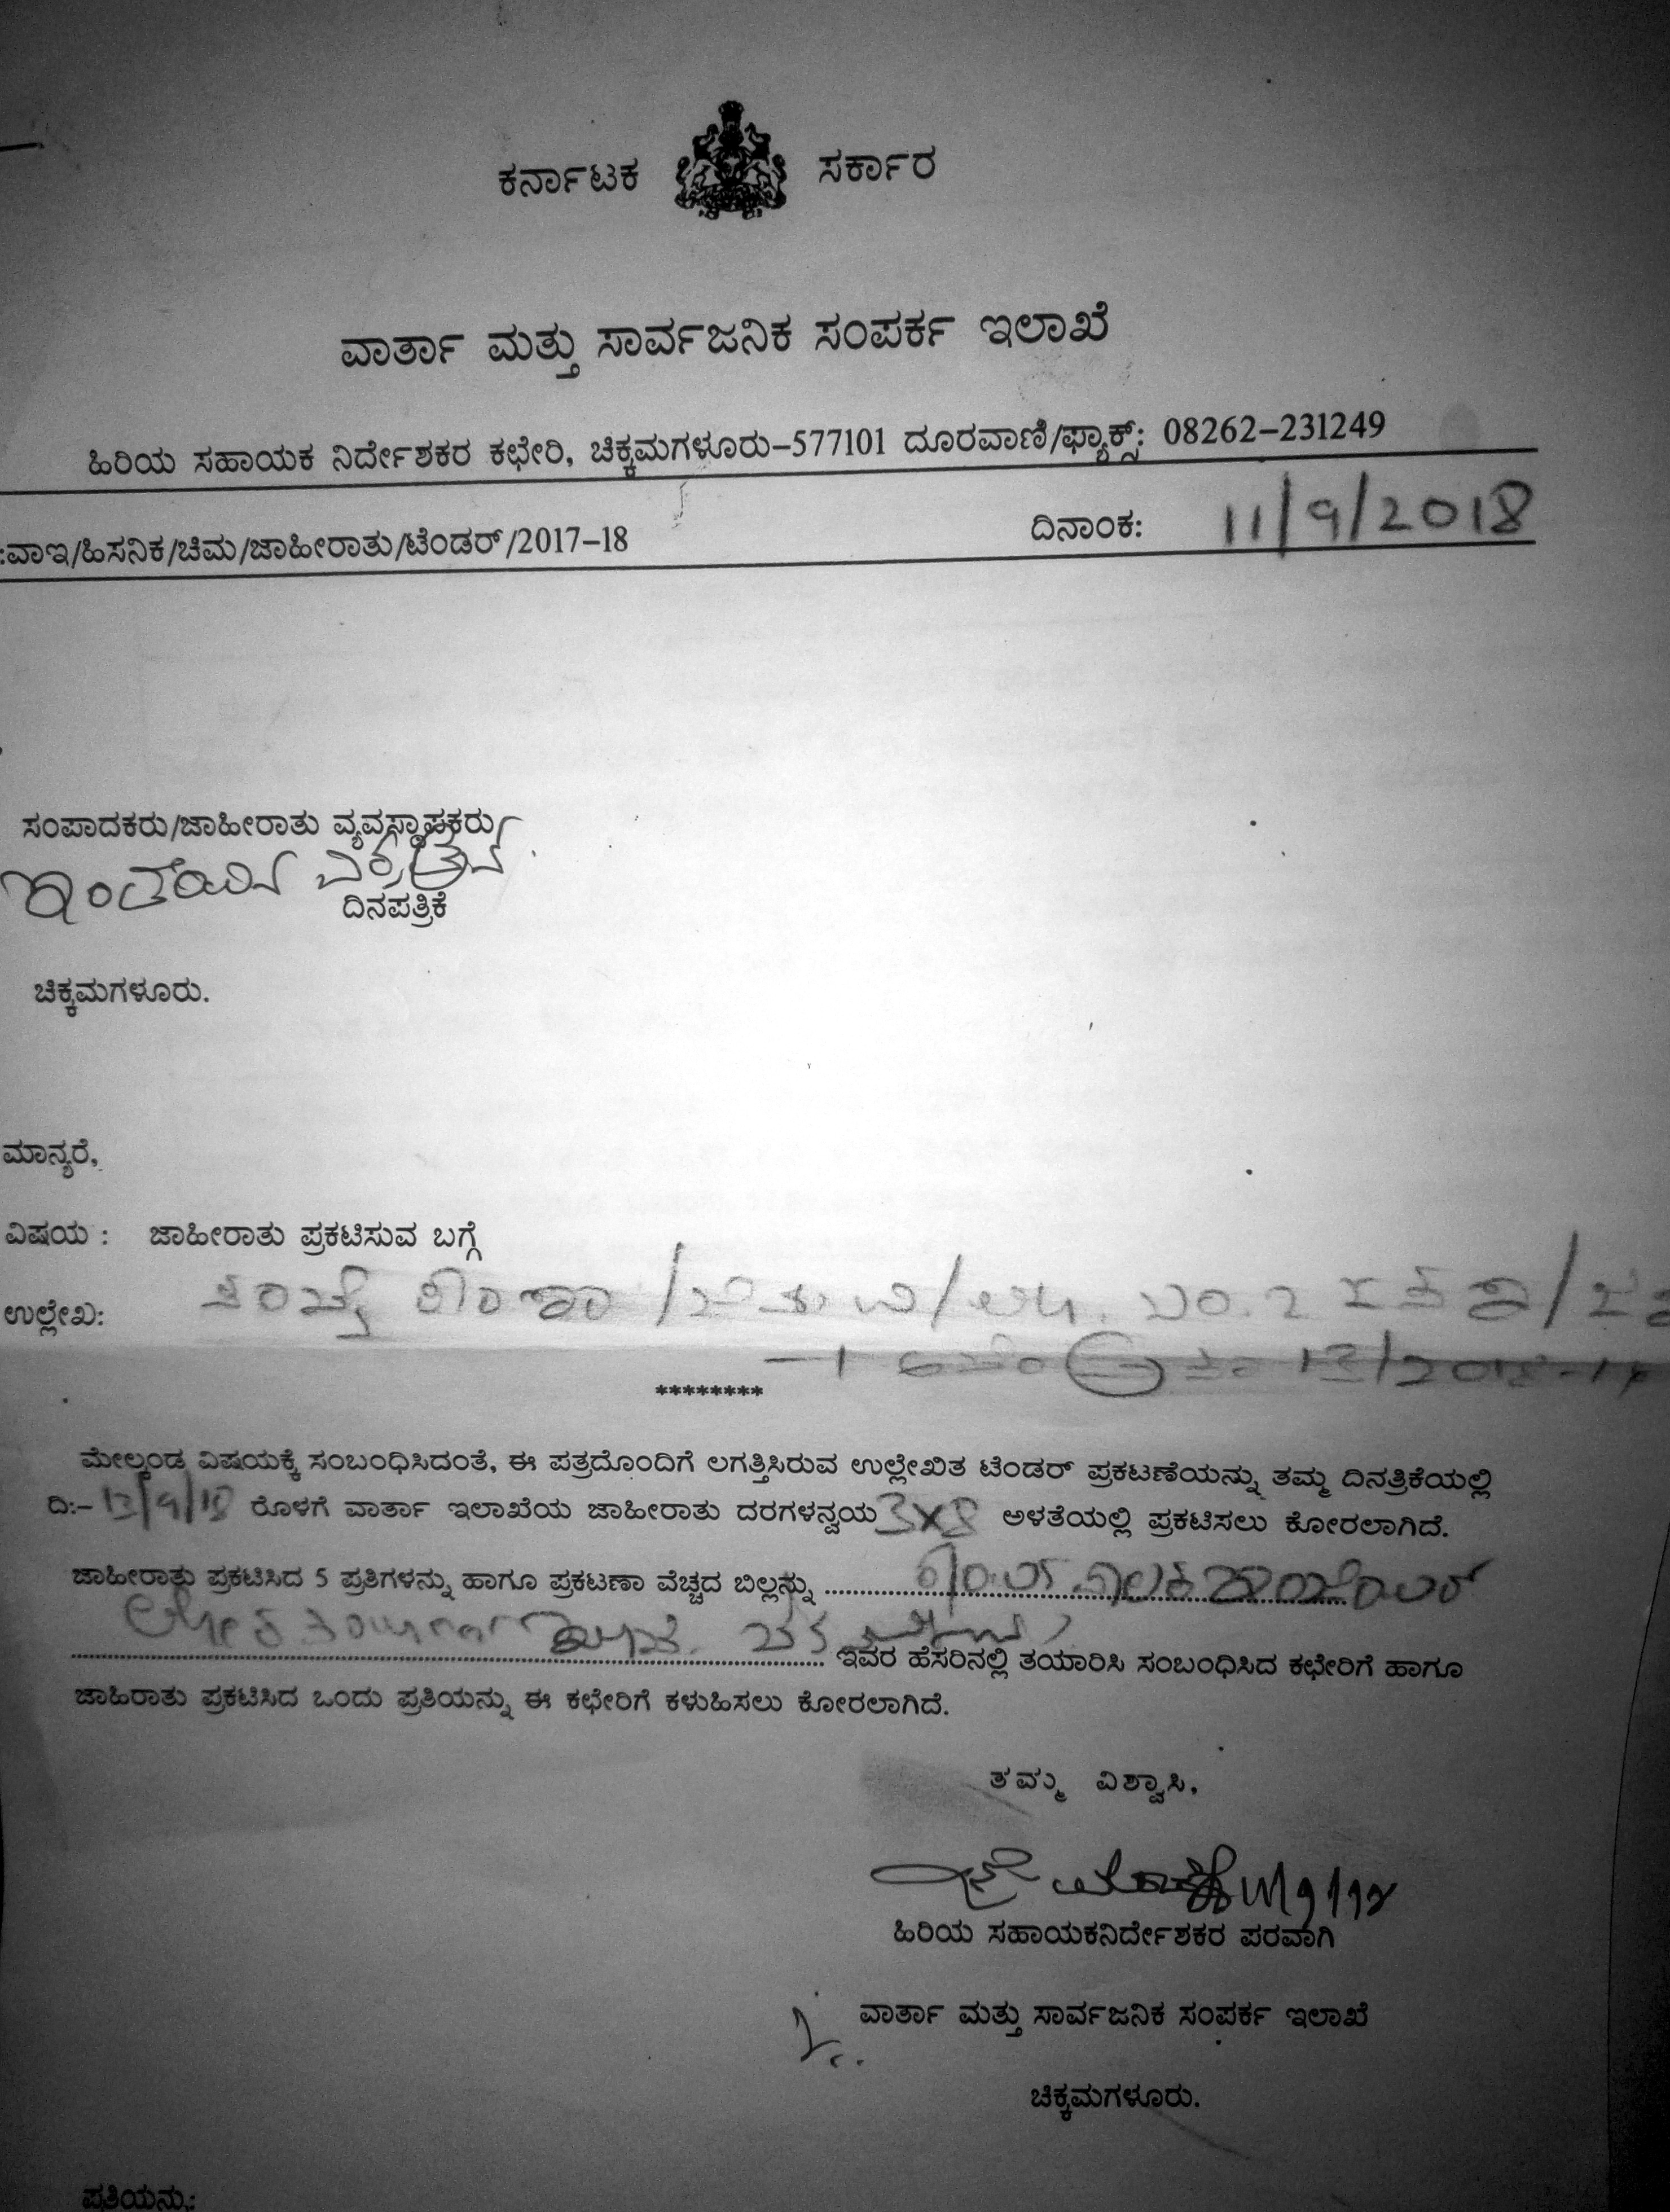 ಕರ್ನಾಟಕ ಸರ್ಕಾರ
ವಾರ್ತಾ ಮತ್ತು ಸಾರ್ವಜನಿಕ ಸಂಪರ್ಕ ಇಲಾಖೆ
ಹಿರಿಯ ಸಹಾಯಕ ನಿರ್ದೇಶಕರ ಕಛೇರಿ, ಚಿಕ್ಕಮಗಳೂರು-577101 ದೂರವಾಣಿ/ಫ್ಯಾಕ್ಸ್: 08262-231249
:ವಾಇ/ಹಿಸನಿಕ/ಚಿಮ/ಜಾಹೀರಾತು/ಟೆಂಡರ್/2017-18 ದಿನಾಂಕ: 11/9/2018
ಸಂಪಾದಕರು/ಜಾಹೀರಾತು ವ್ಯವಸ್ಥಾಪಕರು
ದಿನಪತ್ರಿಕೆ
ಚಿಕ್ಕಮಗಳೂರು.
ಮಾನ್ಯರೆ,
ವಿಷಯ : ಜಾಹೀರಾತು ಪ್ರಕಟಿಸುವ ಬಗ್ಗೆ
ಉಲ್ಲೇಖ:
********
ಮೇಲ್ಕಂಡ ವಿಷಯಕ್ಕೆ ಸಂಬಂಧಿಸಿದಂತೆ, ಈ ಪತ್ರದೊಂದಿಗೆ ಲಗತ್ತಿಸಿರುವ ಉಲ್ಲೇಖಿತ ಟೆಂಡರ್ ಪ್ರಕಟಣೆಯನ್ನು ತಮ್ಮ ದಿನತ್ರಿಕೆಯಲ್ಲಿ
ದಿ:- 13/9/18 ರೊಳಗೆ ವಾರ್ತಾ ಇಲಾಖೆಯ ಜಾಹೀರಾತು ದರಗಳನ್ವಯ 3x8 ಅಳತೆಯಲ್ಲಿ ಪ್ರಕಟಿಸಲು ಕೋರಲಾಗಿದೆ.
ಜಾಹೀರಾತು ಪ್ರಕಟಿಸಿದ 5 ಪ್ರತಿಗಳನ್ನು ಹಾಗೂ ಪ್ರಕಟಣಾ ವೆಚ್ಚದ ಬಿಲ್ಲನ್ನು
ಇವರ ಹೆಸರಿನಲ್ಲಿ ತಯಾರಿಸಿ ಸಂಬಂಧಿಸಿದ ಕಛೇರಿಗೆ ಹಾಗೂ
ಜಾಹಿರಾತು ಪ್ರಕಟಿಸಿದ ಒಂದು ಪ್ರತಿಯನ್ನು ಈ ಕಛೇರಿಗೆ ಕಳುಹಿಸಲು ಕೋರಲಾಗಿದೆ.
ತಮ್ಮ ವಿಶ್ವಾಸಿ,
ಹಿರಿಯ ಸಹಾಯಕನಿರ್ದೇಶಕರ ಪರವಾಗಿ
ವಾರ್ತಾ ಮತ್ತು ಸಾರ್ವಜನಿಕ ಸಂಪರ್ಕ ಇಲಾಖೆ
ಚಿಕ್ಕಮಗಳೂರು.
ಪ್ರತಿಯನ್ನು: